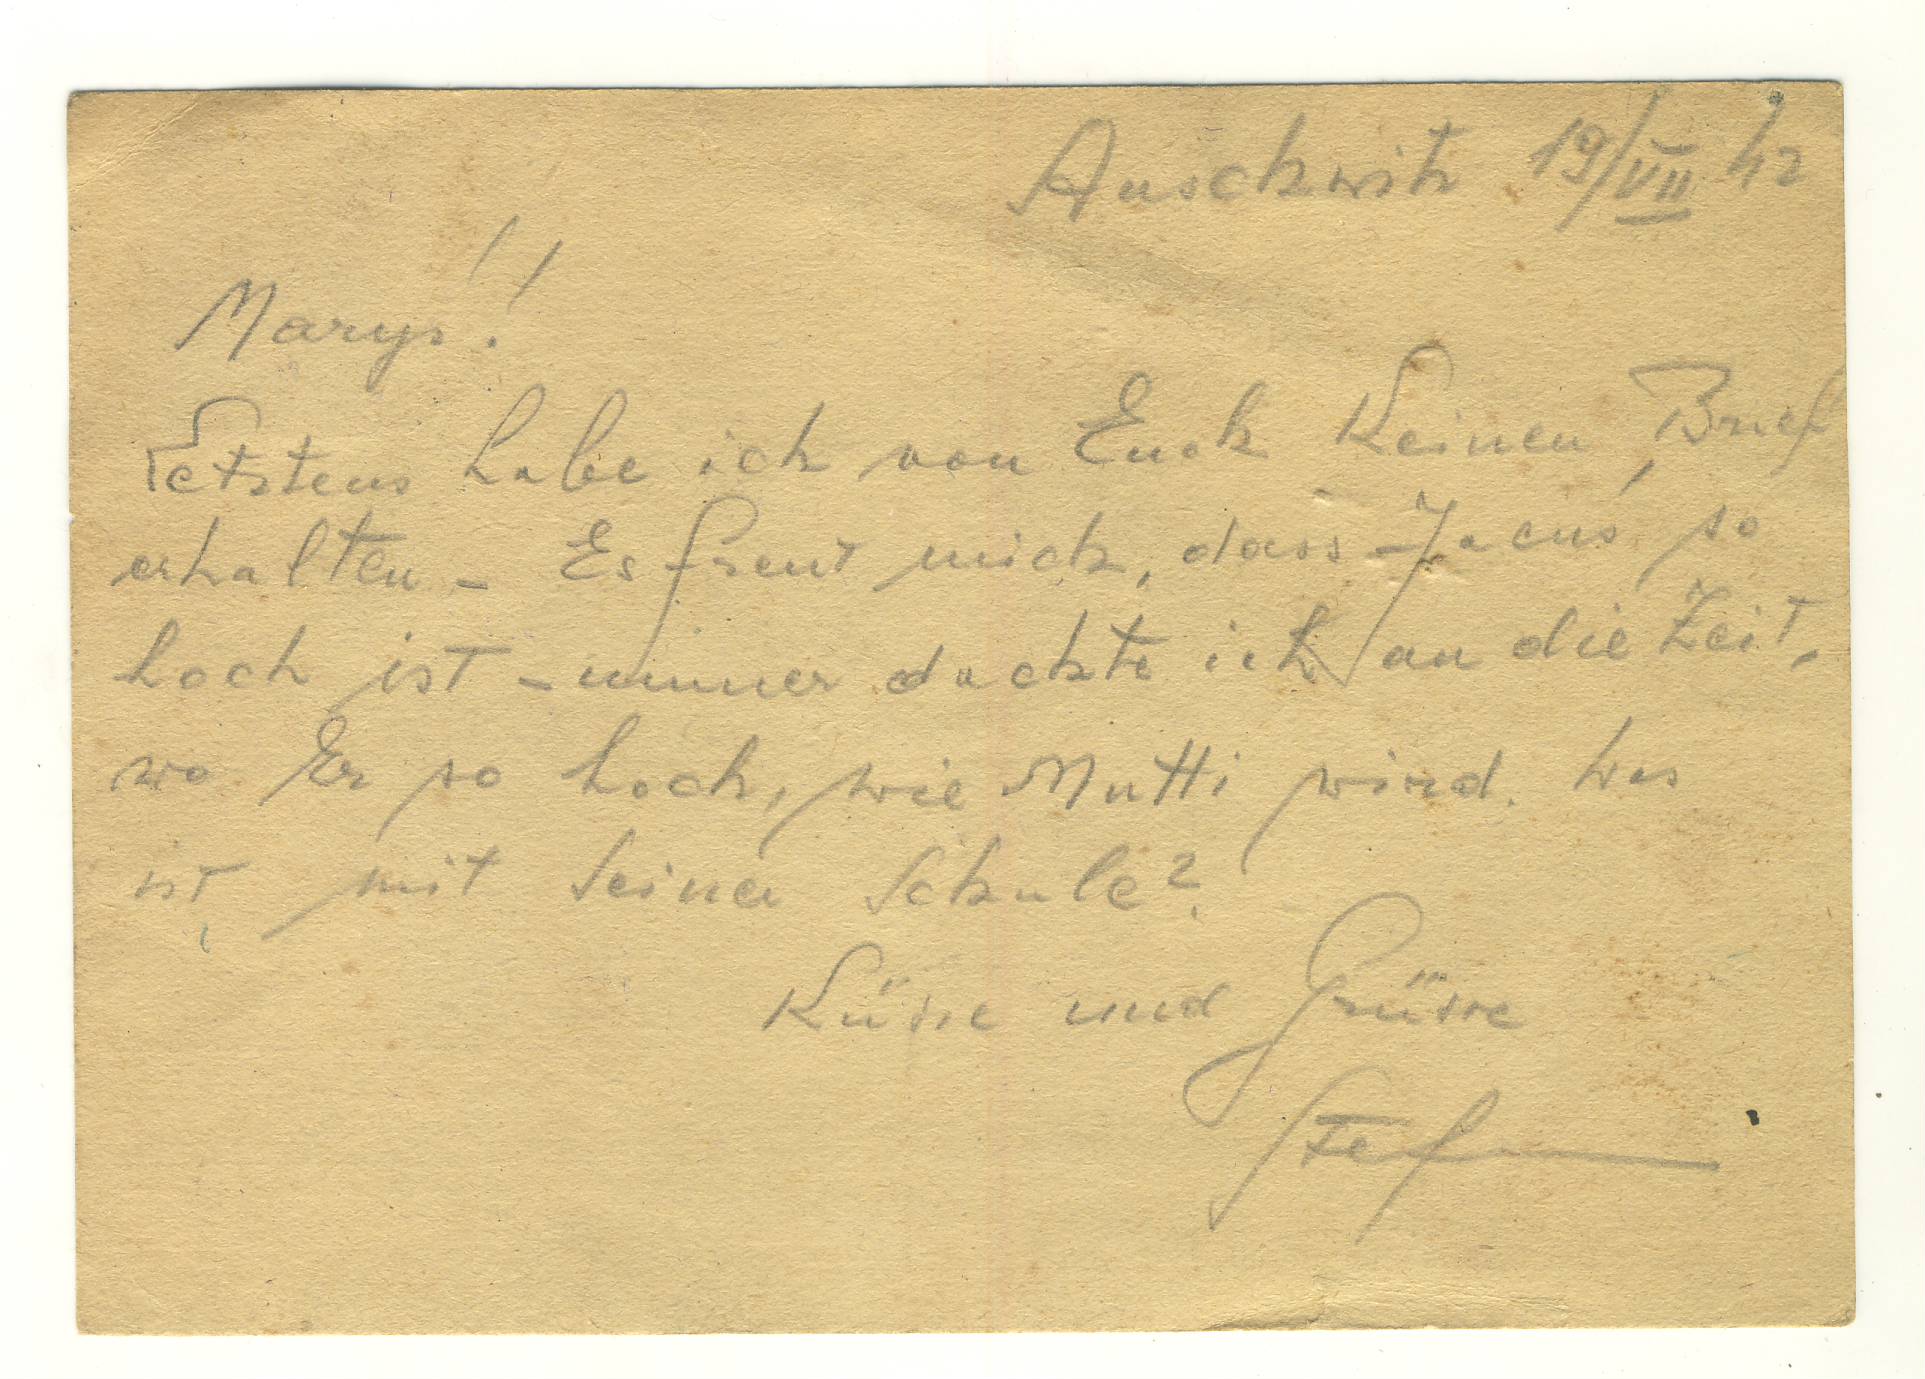 Auschwitz 19/VII 42
Maryś!
Letztens habe ich von Euch Keinen Brief
erhalten - Es freut mich, dass Jacuś so
hoch ist - immer dachte ich an die Zeit,
wo Er so hoch, wie Mutti wird. Was
ist mit Seiner Schule?
Küsse und Grüsse
Stef